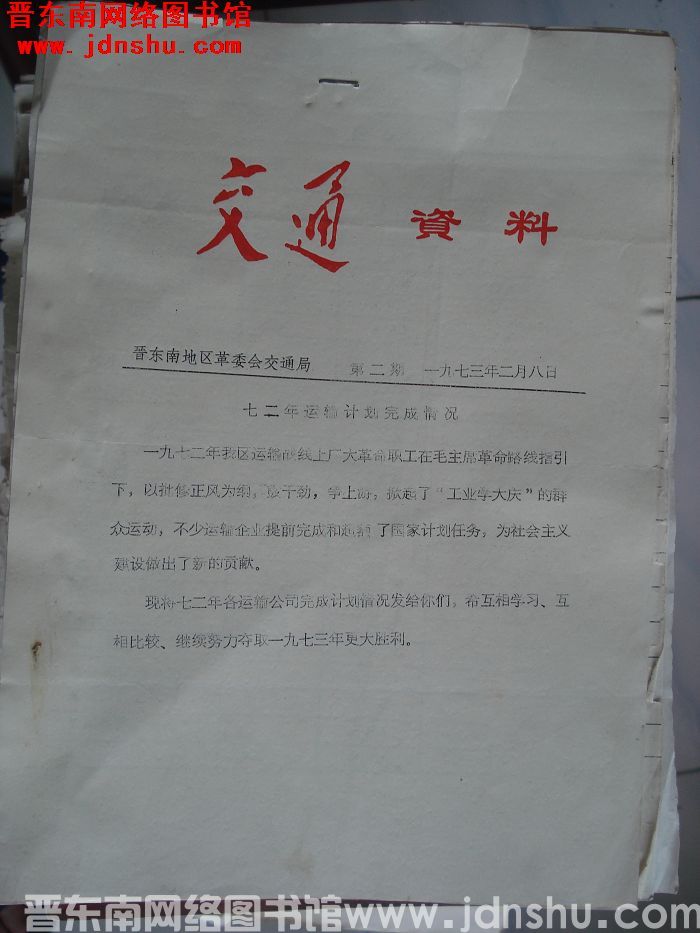 晋东南网络图书馆
www.jdnshu.com
交通 資料
晋东南地区革委会交通局 第二期 一九七三年二月八日
七二年运输计划完成情况
一九七二年我区运输战线上广大革命职工在毛主席革命路线指引
下，以批修正风为纲，鼓干劲，争上游，掀起了“工业学大庆”的群
众运动，不少运输企业提前完成和超额了国家计划任务，为社会主义
建设做出了新的贡献。
现将七二年各运输公司完成计划情况发给你们，希互相学习、互
相比较、继续努力夺取一九七三年更大胜利。
晋东南网络图书馆www.jdnshu.com